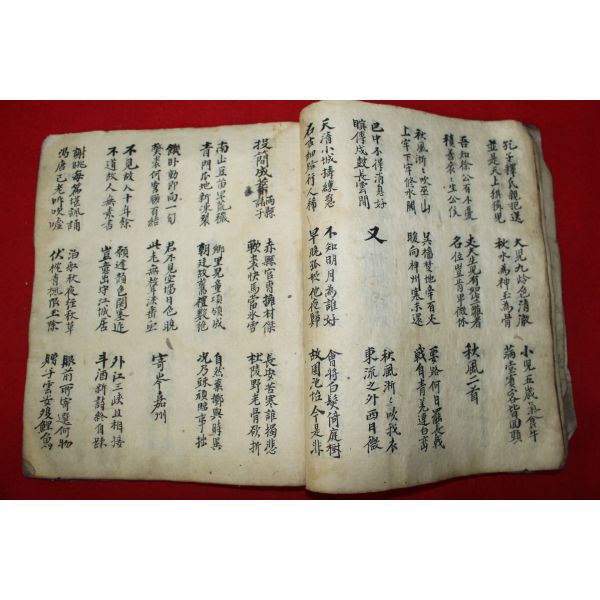 孔子釋氏親抱送
並是天上麒麟兒
大兒九齡色清澈
秋水為神玉為骨
小兒五歲氣食牛
滿堂賓客皆回頭
吾知徐公百不憂
積善袞〻生公侯
丈夫生兒有如此二雛者
名位豈肯卑微休
秋風二首
秋風淅〻吹巫山
上牢下牢修水關
吳檣楚柁牽百丈
暖向神州寒未還
要路何日罷長戟
戰自青羌連白蠻
巴中不得消息好
暝傳戍鼓長雲間
又
秋風淅〻吹我衣
東流之外西日微
天清小城搗練急
石古細路行人稀
不知明月為誰好
早晚孤帆他夜歸
會將白髮倚庭樹
故園池臺今是非
投簡咸華兩縣諸子
赤縣官曹擁材傑
軟裘快馬當氷雪
長安苦寒誰獨悲
杜陵野老骨欲折
南山豆苗早荒穢
青門瓜地新凍裂
鄉里兒童項領成
朝廷故舊禮數絕
自然棄擲與時異
況乃疎頑臨事拙
饑臥動即向一旬
弊衣何啻聯百結
君不見空墻日色晚
此老無聲淚垂血
寄岑嘉州
不見故人十年餘
不道故人無素書
願逢顏色關塞遠
豈意出守江城居
外江三峽且相接
斗酒新詩終自疎
謝眺每篇堪諷誦
馮唐已老聽吹噓
泊船秋夜經秋草
伏枕青楓限玉除
眼前所寄選何物
贈子雲安雙鯉魚